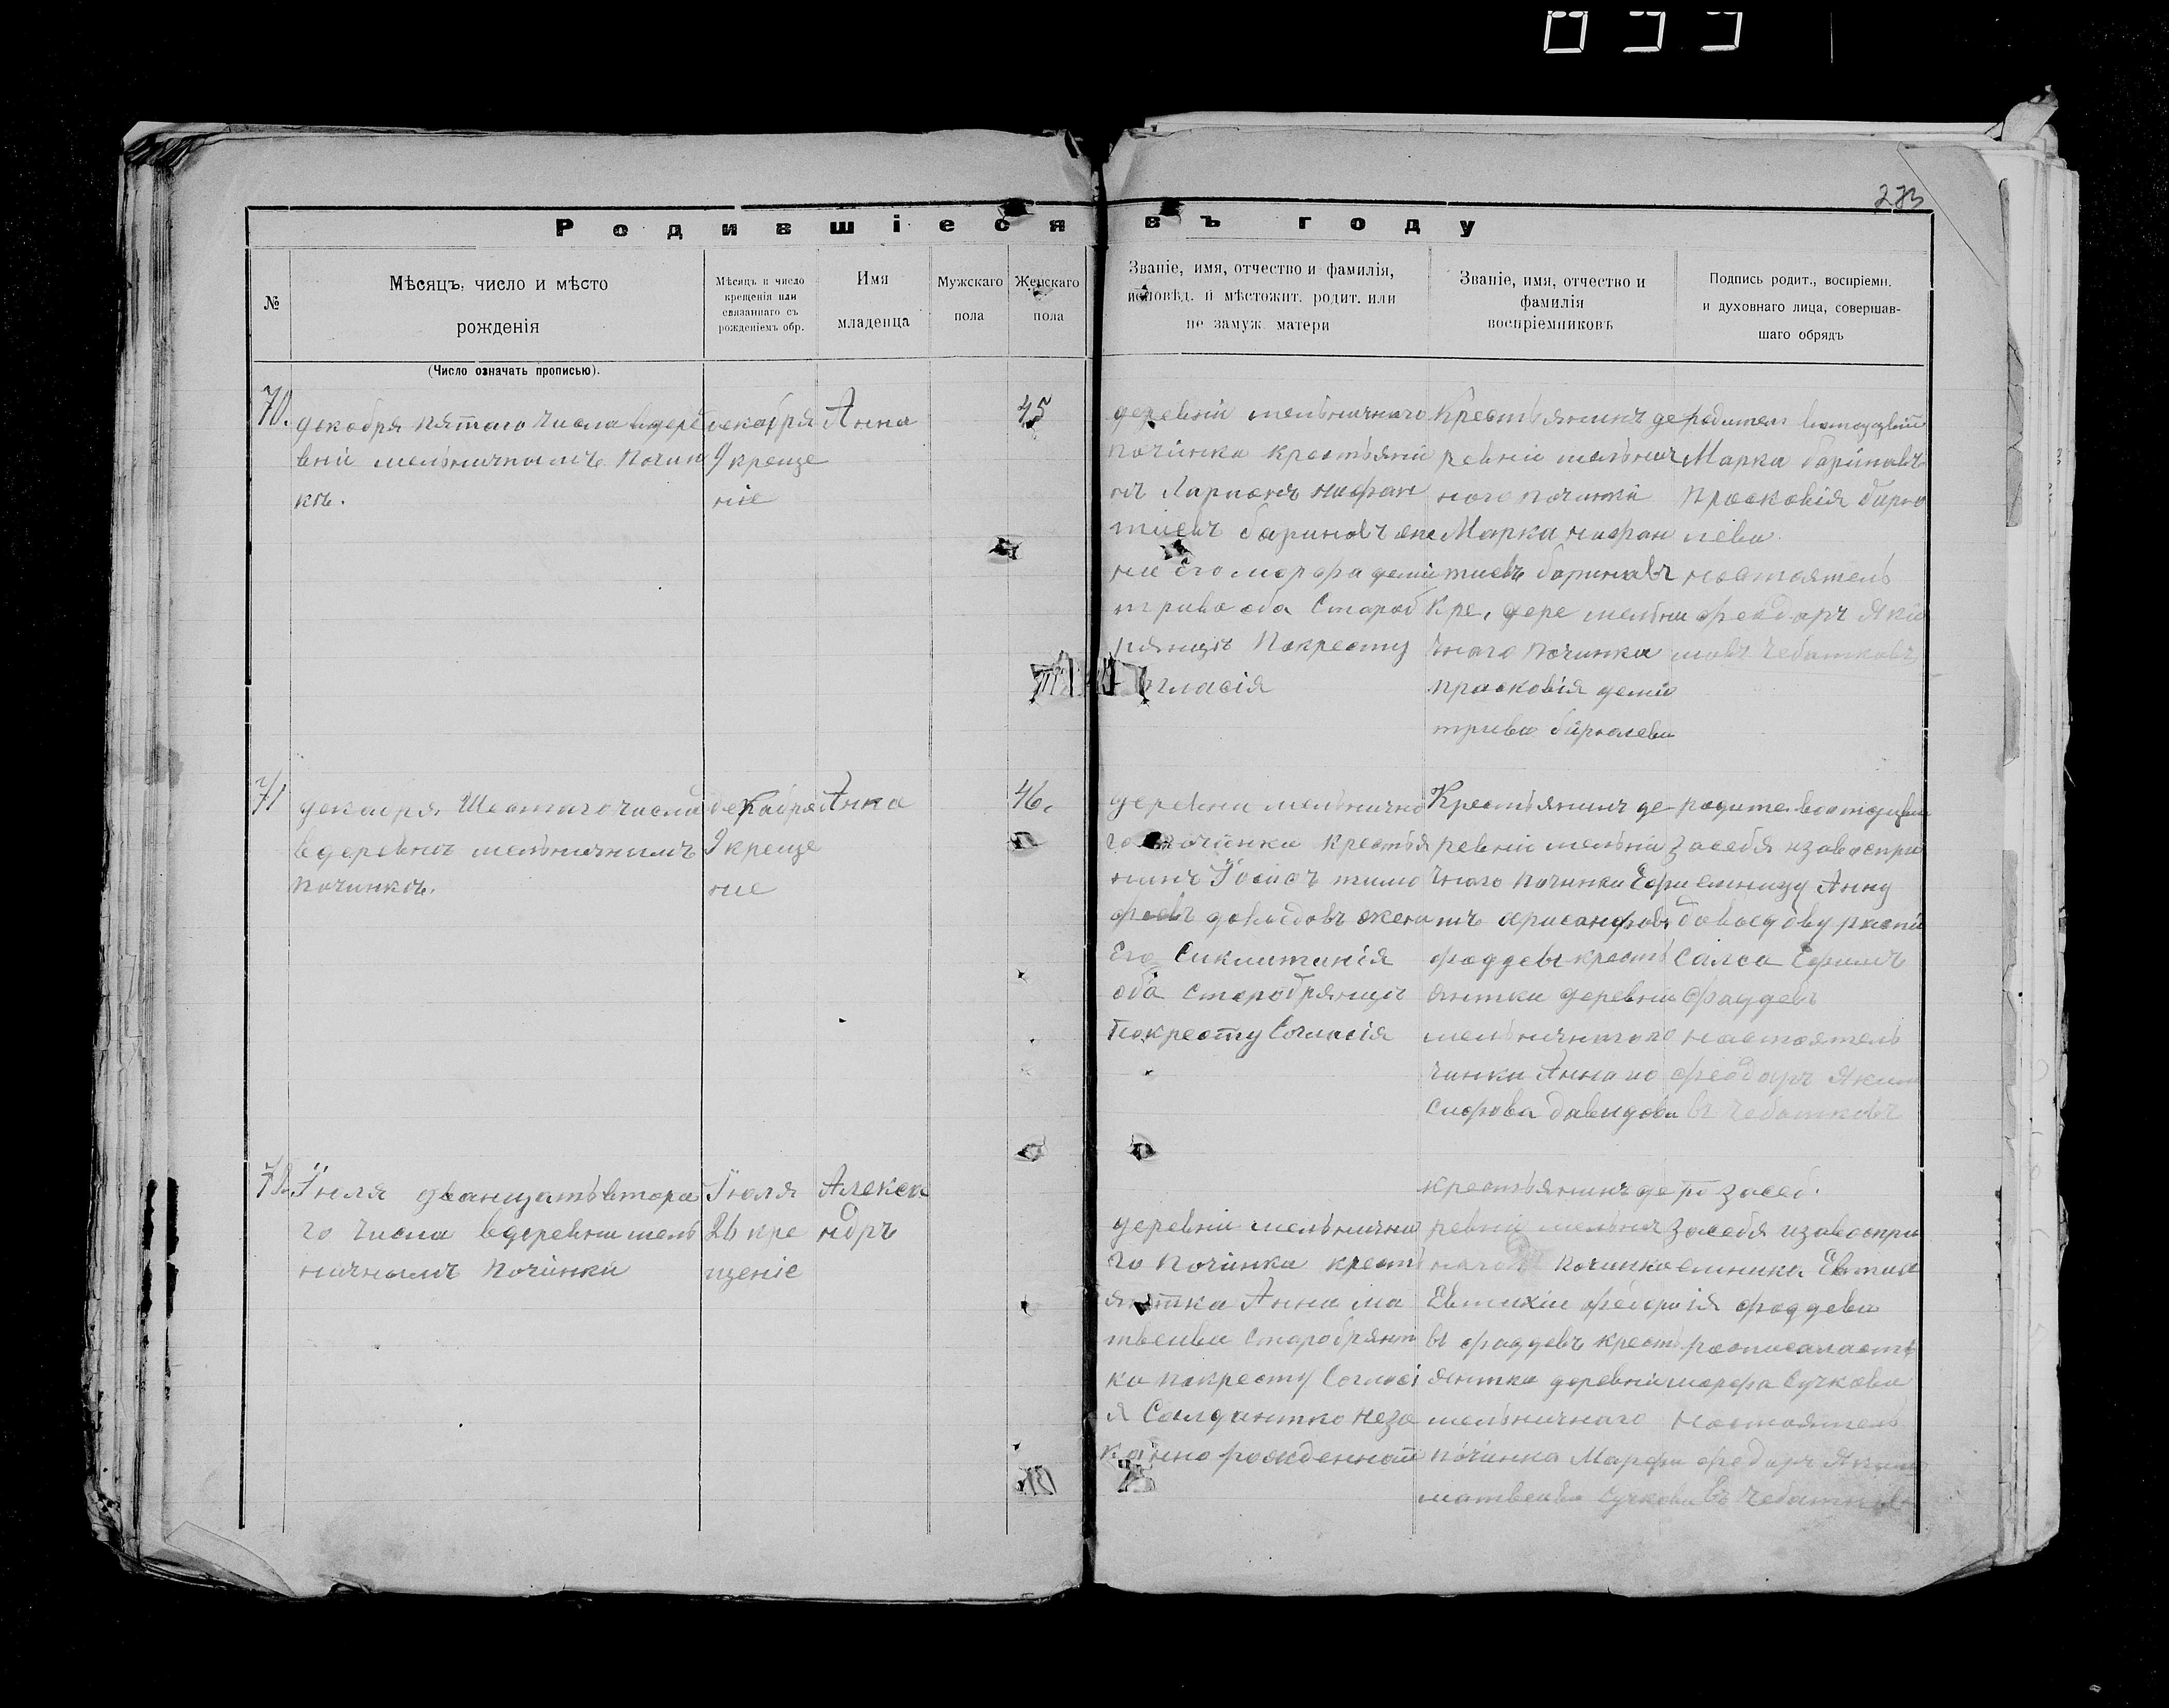 033
233
Родившіеся въ году
№
Мѣсяцъ, число и мѣсто
рожденія
Мѣсяцъ и число
крещенія или
связаннаго съ
рожденіемъ обр.
Имя
младенца
Мужскаго
пола
Женскаго
пола
Званіе, имя, отчество и фамилія,
исповѣд. и мѣстожит. родит. или
не замуж. матери
Званіе, имя, отчество и
фамилія
воспріемниковъ
Подпись родит., воспріемн.
и духовнаго лица, совершав-
шаго обрядъ
(Число означать прописью).
70.
декобря пятаго числа вдере
вни мельничнымъ почин
кѣ.
декабря
9 креще
ніе
Анна
45
деревни мельничнаго
починка крестьяни
нъ Ларионъ нифан
тиевъ бариновъ жө
ни его марфа деми
трива оба староб
рянцы покресту
гласія
Крестьянинъ де
ревни мельнич
ного починка
Марка нифан
тиевъ бариновъ
кре. дере мельни
чнаго починка
прасковія деми
трива бирюлева
родители
Марка бариновъ
Просковія бирю
лева
настоятель
феодаръ Яки
мовъ чеботковъ
71
декабря шестаго числа
вдеревни мельничнымъ
починкѣ.
декабря
9 креще
ние
Анна
46.
деревни мельнично
го починка крестья
нинъ Іосифъ тимо
феевъ довыдовъ жена
Его Сиклитинія
оба старобрянцы
Покресту Согласія
Крестьянинъ де
ревни мельни
чнаго починка Ефи
мъ
фаддевъ кресть
янтка деревни
мельничнаго по
чинка Анна ио
сифова давидова
засебя изавоспри
емницу Анну
довыдову распи
сался Ефимъ
фаддевъ
настоятель
феодаръ Яким
въ чеботковъ
Іюля дванцатьвтора
го числа вдеревни мель
ничнымъ починки
Іюля
26 кре
щеніе
Алекса
ндръ
деревни мельнично
го починка крест
янтка Анна ма
твеива старобрянт
ка покресту Согласі
я Салдантка неза
конно рожденный
крестьянинъ де
ревни мельнич
починка
Евтихіи федоро
въ фаддевъ кресть
янтка деревни
мельничнаго
починка Марфа
матвеива Сучкова
засеб.
засебя изавоспри
емника Евтих
ія фаддева
росписаласть
марфа Сучкова
настоятель
федаръ Яким
въ чеботковъ